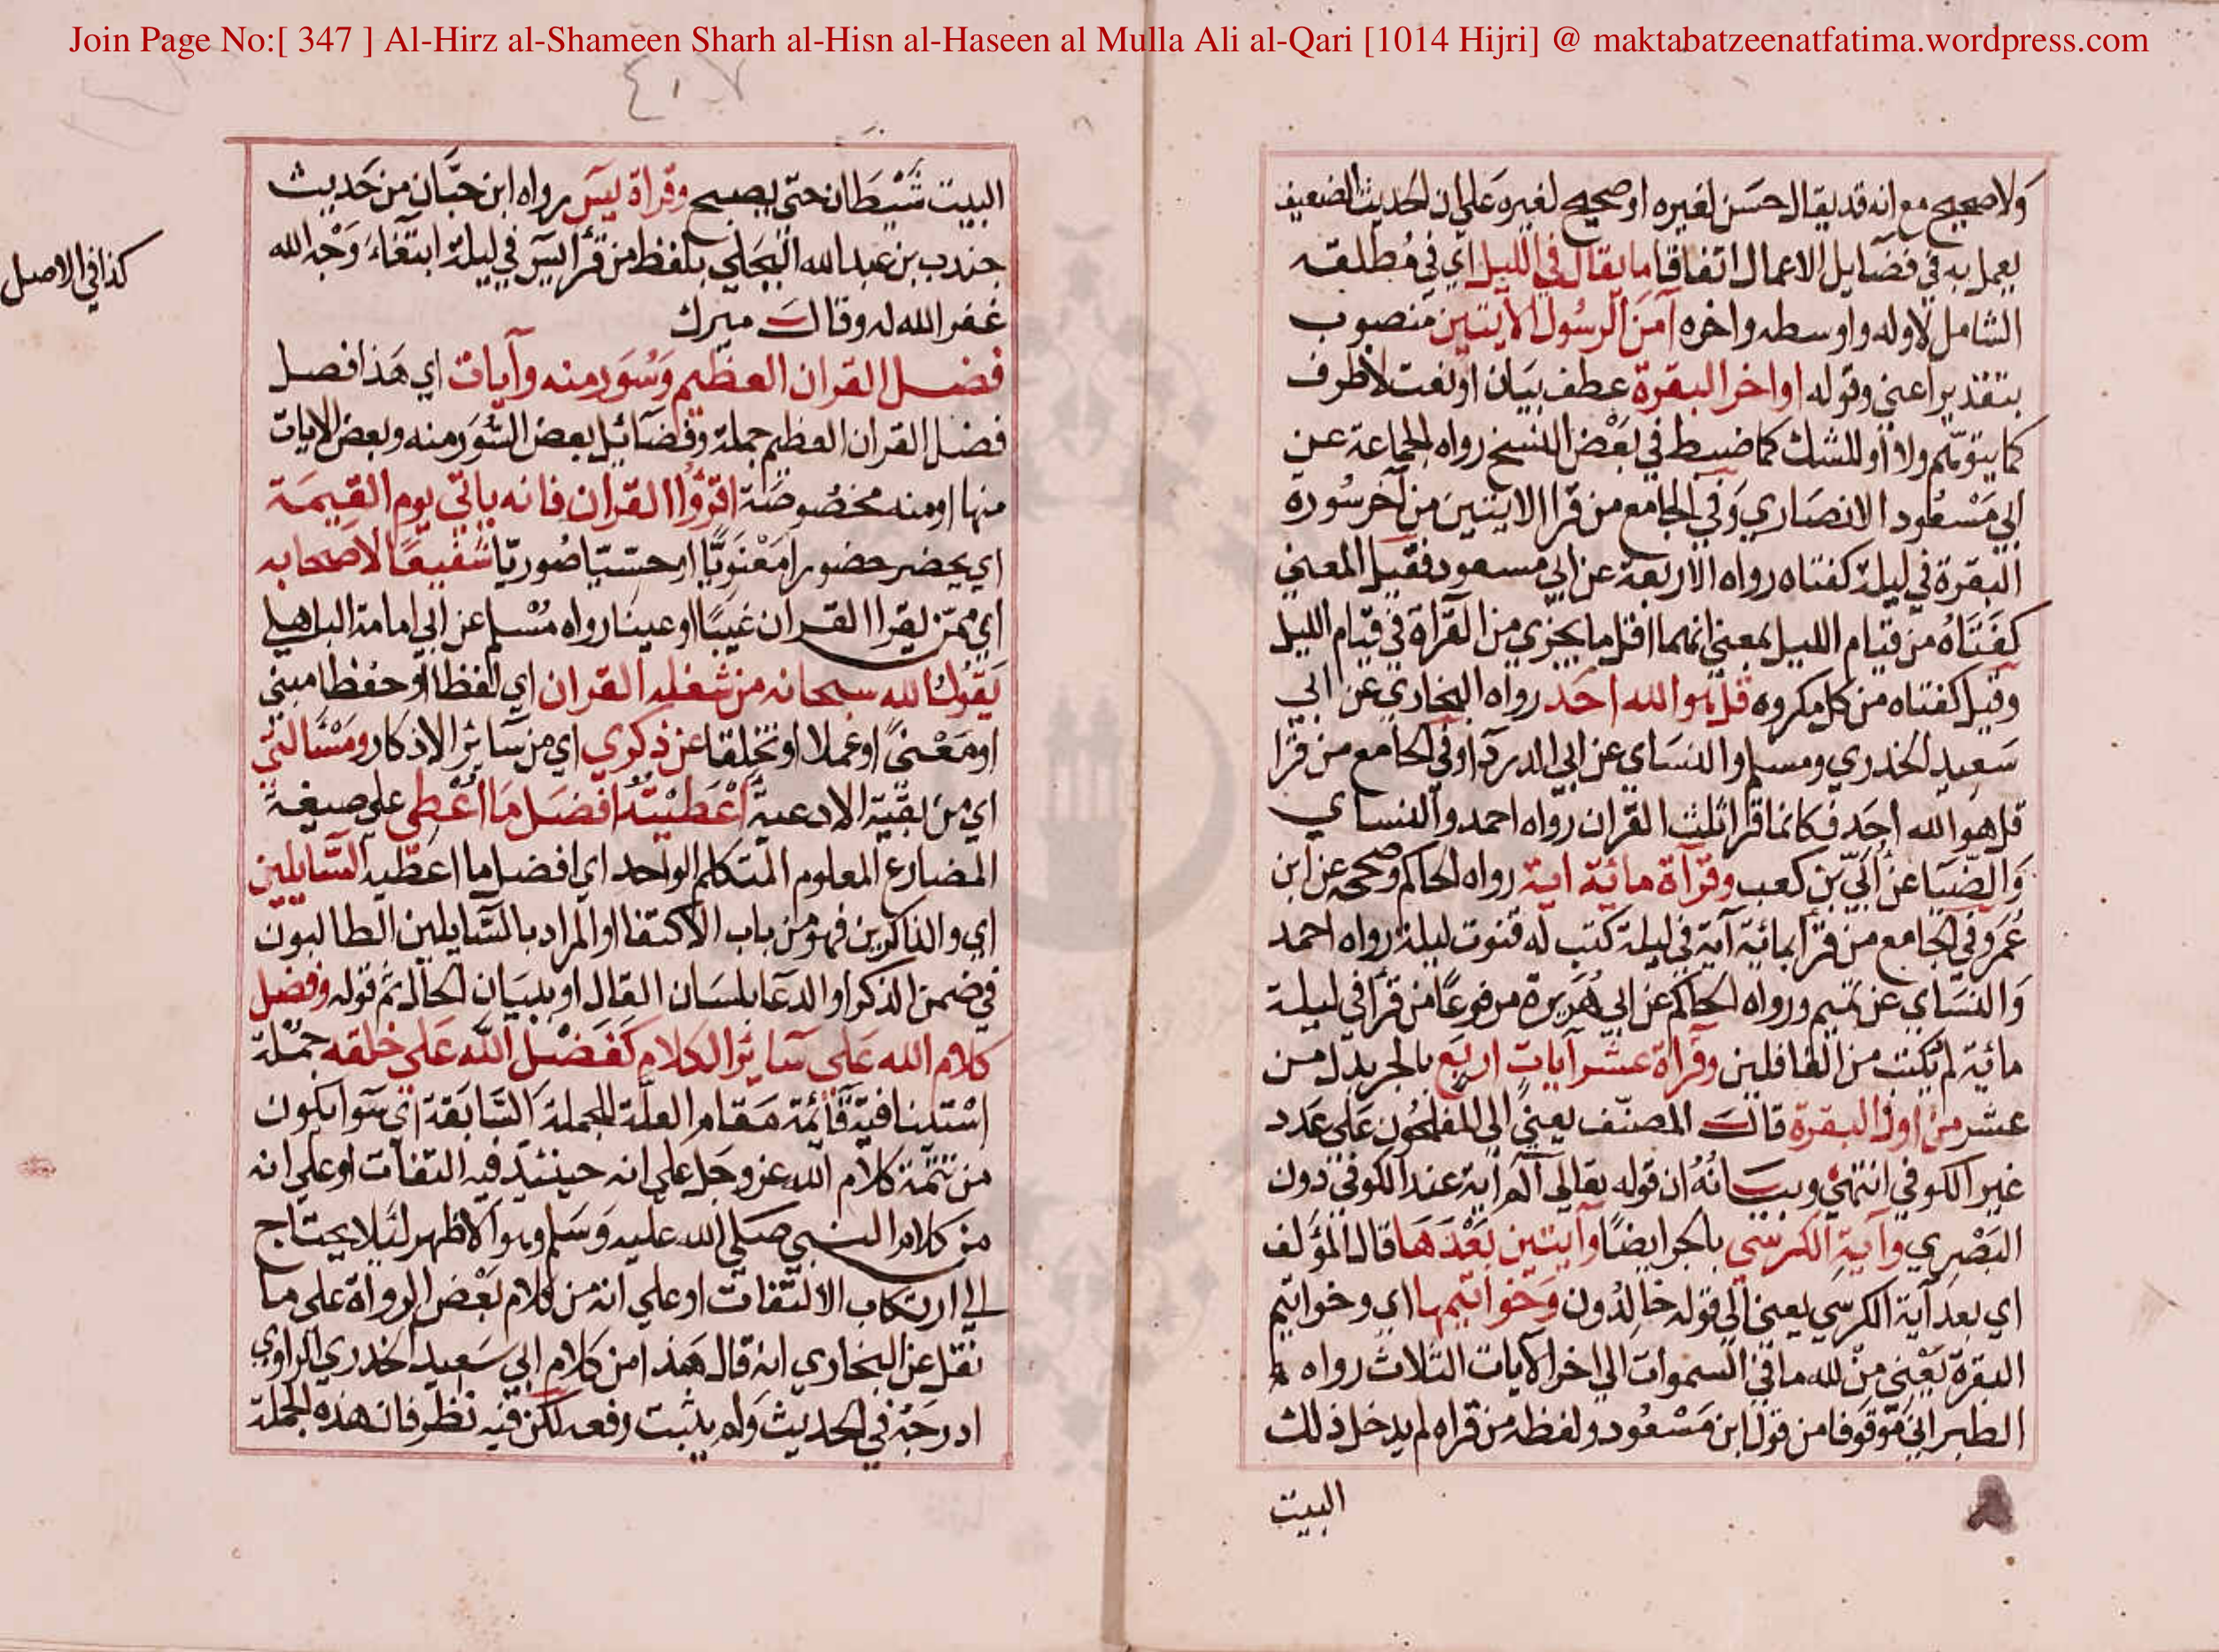 Join Page No:[ 347 ] Al-Hirz al-Shameen Sharh al-Hisn al-Haseen al Mulla Ali al-Qari [1014 Hijri] @ maktabatzeenatfatima.wordpress.com
ولا صحيح مع انه قد يقال حسَن لغيره او صحيح لغيره عَلي ان الحديث الضعيف
يعمل به في فضَايل الاعمال اتفاقا ما يقال في الليل اي في مُطلقه
الشامل لاوله واوسطه واخره آمَنَ الرسُول الآيتين منصوب
بتقدير اعني وقوله اواخر البقرة عطف بيَان او نعت لا ظرف
كما يتوهّم ولا او للشك كما ضبط في بعْض النسخ رواه الجماعة عن
ابي مَسْعُود الانصَاري وَفي الجامع من قرا الايتين من آخر سُورة
البقرة في ليلة كفتاه رواه الاربعة عن ابي مسعود فقيل المعني
كفَتَاهُ من قيَام الليل بمعني انهما اقل ما يجزي من القرآة في قيام الليل
وقيل كفتاه من كل مكروه قل هو الله احَد رواه البخاري عن ابي
سَعِيد الخدري ومسلم والنسَاي عن ابي الدردآ وفي الجامع من قرا
قل هو الله احَد فكانما قرا ثلث القرآن رواه احمد والنساي
وَالضّيَا عن اُبَيّ بن كعب وقرآة مائة اية رواه الحاكم وصححه عن ابن
عُمَر وفي الجامع من قرأ بمائة آية في ليلة كتب له قنوت ليلة رواه احمد
وَالنّسَاي عن تميم ورواه الحاكم عن ابي هُرَيرة مرفوعًا من قرأ في ليلة
مائية لم يكتب من الغافلين وقراة عشر آيات اربَع بالجر بدل من
عشر من اول البقرة قالَ المصنّف يعنيً الي المفلحُون عَلي عَدد
غير الكوفي انتهيٰ وبيَانُهُ ان قوله تعالي الم اية عند الكوفي دون
البَصْري وآية الكرسّي بالجر ايضًا وآيتين بَعْدَهَا قال المؤلف
اي بعد آية الكرسي يعني الي قوله خالِدُون وَخواتيمها اي وخواتيم
البقرة يَعْني من لله ما في السموات الي اخر الآيات الثلاث رواه
الطبراني مَوقوفا من قول ابن مَسْعُود ولفظه من قراه لم يدخل ذلك
البيت
البيت شَيْطَان حتّي يصبح وقراة يسَ رواه ابن حبَّان من حَديث
جندب بن عبد الله البَجلي بلفظ من قرأ يسَ في ليلة ابتغاءَ وَجْه الله
غفر الله له وقالَ ميرك
كذا في الاصل
فضل القران العظيم وَسُوَر منه وآيات اي هَذا فصل
فضل القران العظيم جملة وفضَائل بعض السُّوَر منه وبعض الايات
منها او منه مخصُوصَة اقرؤُا القران فانه ياتي يوم القيمَة
اي يحضر حضورا مَعْنَوِيًّا او حسّيّا صُوريّا شفيعًا لاصحابه
اي ممّن يقرا القران غيبًا او عينا رواه مُسْلم عن ابي امامة الباهلي
يَقُولُ الله سبحانه من شغله القران اي لفظا او حفظا مبني
او مَعْنيً او عملا او تخلقا عن ذكري اي من سَائر الاذكار ومَسْالتيْ
اي من بقيّة الادعية أعْطَيْتُهُ افضَل مَا اُعْطِي علي صيغة
المضارع المعلوم المتكلم الواحد اي افضل ما اعطيه السَّايلين
اي والذاكرين فهو من باب الاكتفا او المراد بالسَّايلين الطالبون
في ضمن الذكر او الدعَا بلسَان القال او ببيَان الحال ثم قوله وفضل
كلام الله عَلي سَائر الكلام كفَضْل اللّه عَلي خلقه جمْلة
اسْتئنافيّة قَائمة مقام العلّة للجملة السَّابقة اي سَوا يكون
من تتمّة كلام الله عز وجَل علي انه حينئيذ فيه التفات او علي انه
من كلام النبي صَلي الله عليه وَسَلم وهو الاظهر لئلا يحتاج
الي ارتكاب الالتفات او علي انه من كلام بَعْض الرواة علي ما
نقل عن البخاري انه قال هَذا من كلام ابي سَعيد الخدري الراوي
ادرجَهُ في الحديث وَلم يثبت رفعه لكن فيه نظر فان هذه الجملة